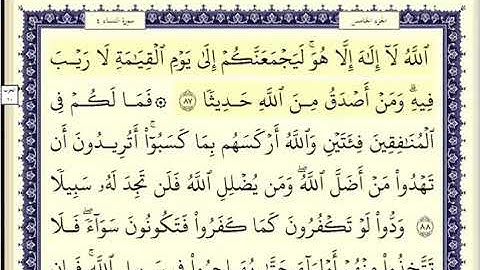 الجزء الخامس
سورة النساء ٤
ٱللَّهُ لَآ إِلَٰهَ إِلَّا هُوَۚ لَيَجۡمَعَنَّكُمۡ إِلَىٰ يَوۡمِ ٱلۡقِيَٰمَةِ لَا رَيۡبَ
فِيهِۗ وَمَنۡ أَصۡدَقُ مِنَ ٱللَّهِ حَدِيثٗا ٨٧ ۞ فَمَا لَكُمۡ فِي
ٱلۡمُنَٰفِقِينَ فِئَتَيۡنِ وَٱللَّهُ أَرۡكَسَهُم بِمَا كَسَبُوٓاْۚ أَتُرِيدُونَ أَن
تَهۡدُواْ مَنۡ أَضَلَّ ٱللَّهُۖ وَمَن يُضۡلِلِ ٱللَّهُ فَلَن تَجِدَ لَهُۥ سَبِيلٗا
٨٨ وَدُّواْ لَوۡ تَكۡفُرُونَ كَمَا كَفَرُواْ فَتَكُونُونَ سَوَآءٗۖ فَلَا
تَتَّخِذُواْ مِنۡهُمۡ أَوۡلِيَآءَ حَتَّىٰ يُهَاجِرُواْ فِي سَبِيلِ ٱللَّهِۚ فَإِن